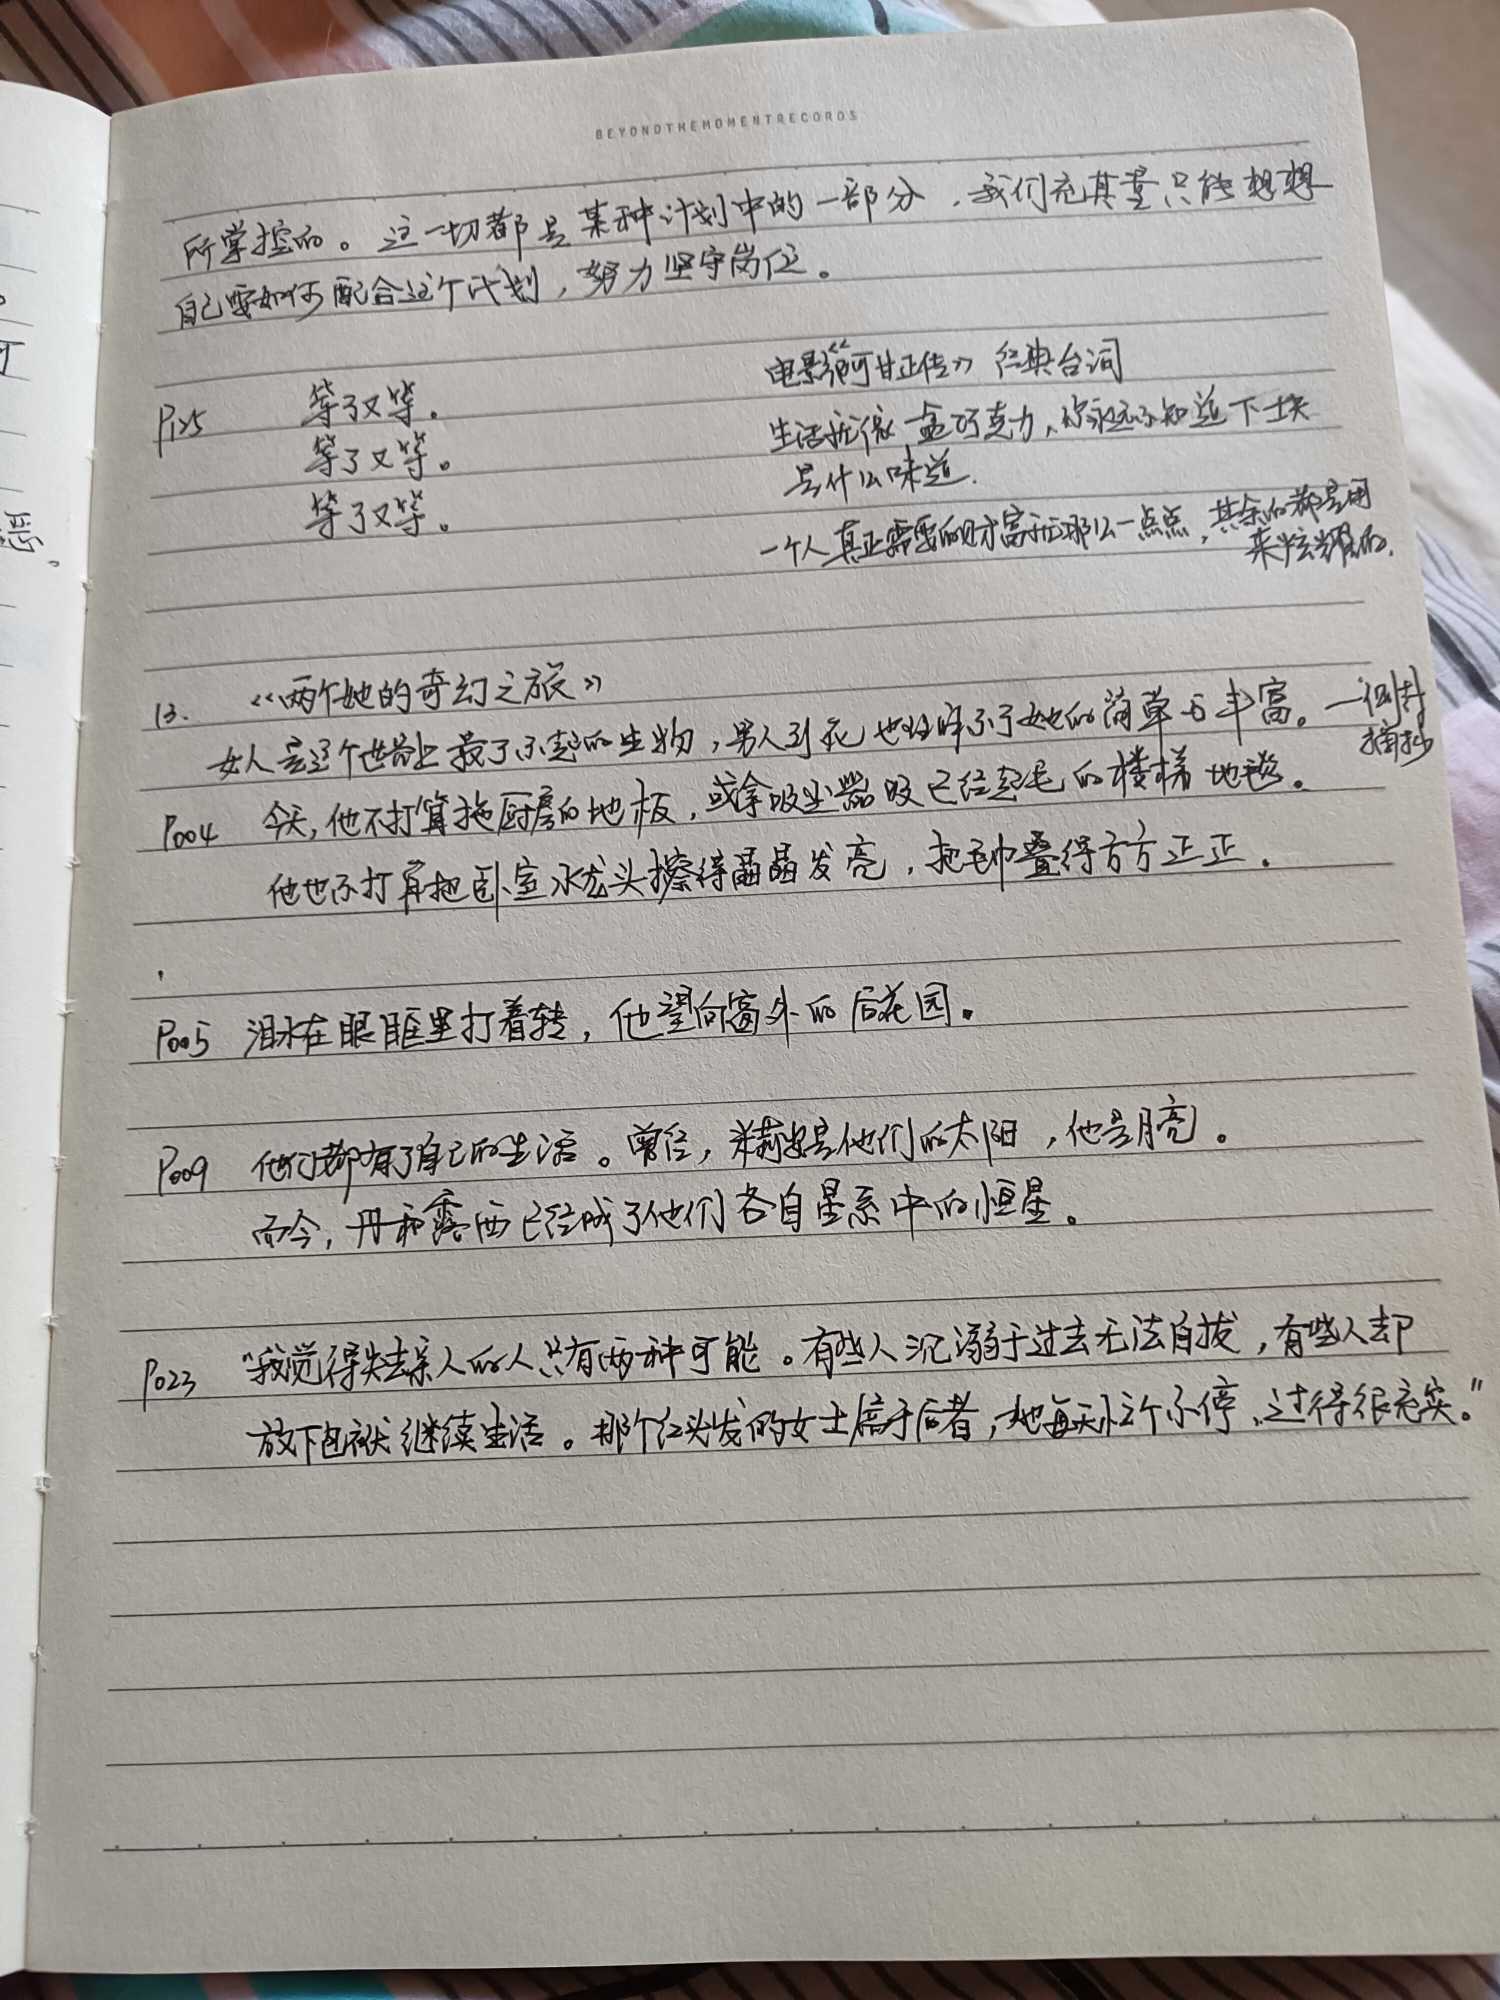 BEYONDTHEMOMENTRECORDS
所掌控的。这一切都是某种计划中的一部分，我们充其量只能想想
自己要如何配合这个计划，努力坚守岗位。
P125 等了又等。
等了又等。
等了又等。
电影《阿甘正传》经典台词
生活就像一盒巧克力，你永远不知道下一块
是什么味道.
一个人真正需要的财富就那么一点点，其余的都是用
来炫耀的.
13. 《两个她的奇幻之旅》
女人是这个世界上最了不起的生物，男人到死也理解不了她的简单与丰富。—侧封
摘抄
P004 今天，他不打算拖厨房的地板，或拿吸尘器吸已经起毛的楼梯地毯。
他也不打算把卧室水龙头擦得晶晶发亮，把毛巾叠得方方正正.
P005 泪水在眼眶里打着转，他望向窗外的后花园。
P009 他们都有了自己的生活。曾经，米莉安是他们的太阳，他是月亮。
而今，丹和露西已经成了他们各自星系中的恒星。
P023 "我觉得失去亲人的人只有两种可能。有些人沉溺于过去无法自拔，有些人却
放下包袱继续生活。那个红头发的女士属于后者，她每天忙个不停，过得很充实。"
恶.